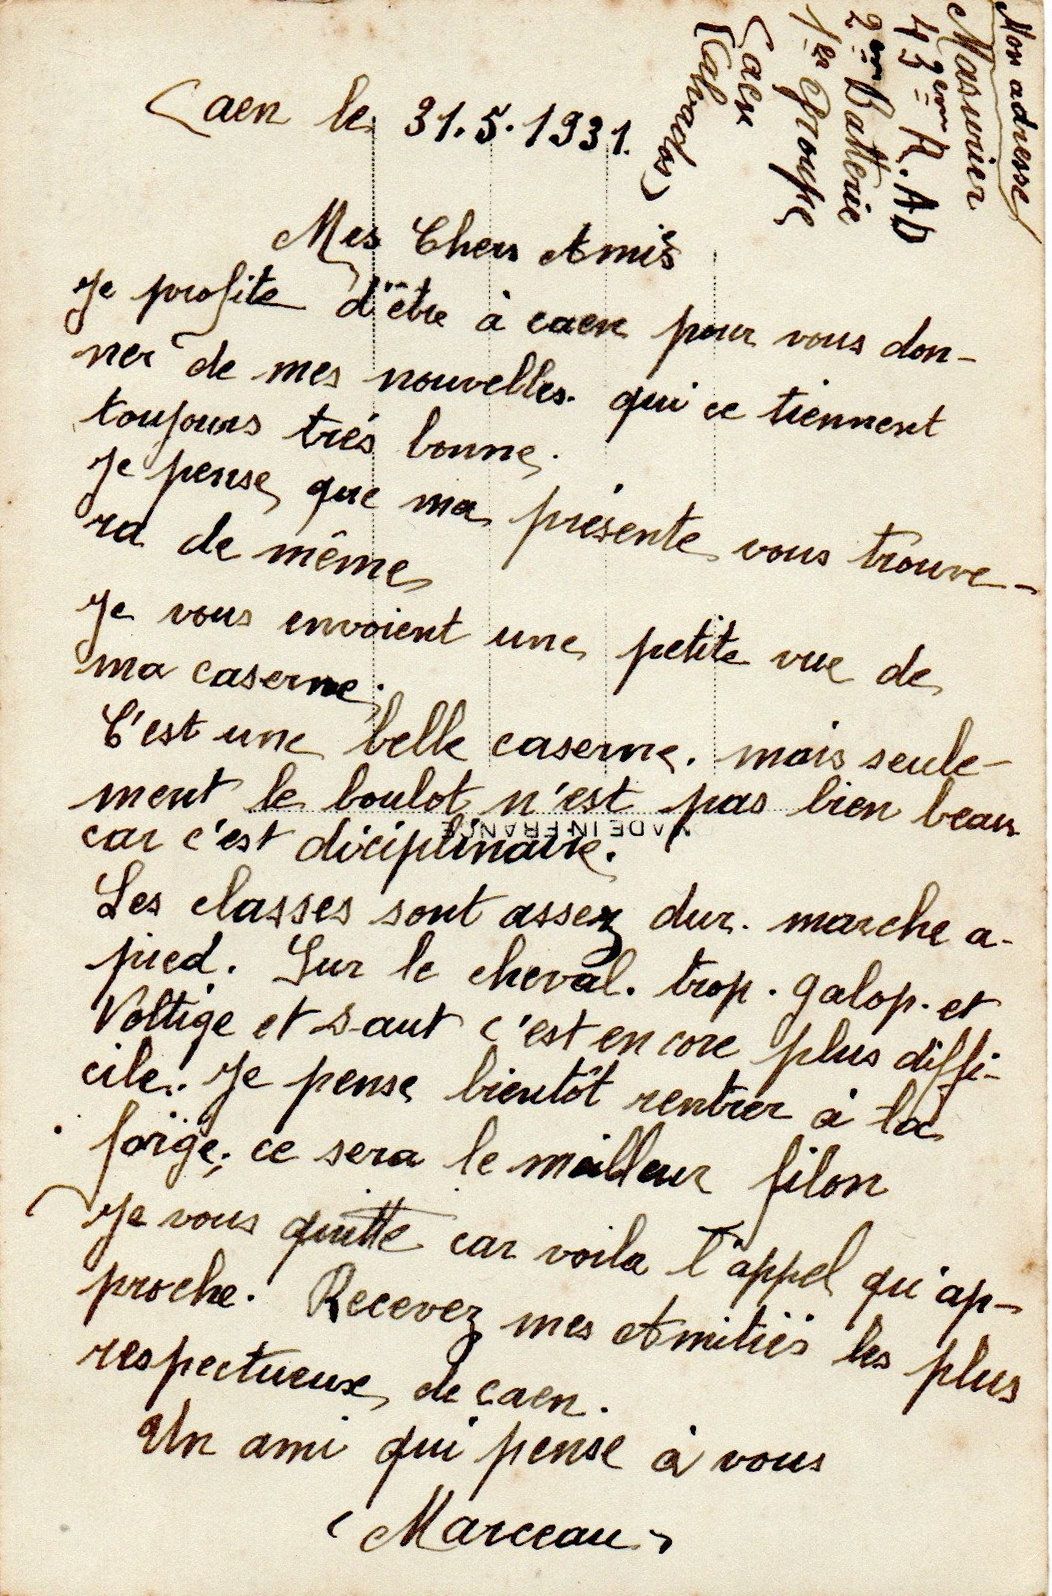 Mon adresse
Masurier
43ème R.AD
2ème Batterie
1er Groupe
Caen
(Calvados)
Caen le 31.5.1931.
Mes Chers Amis
Je profite d'être à caen pour vous don-
ner de mes nouvelles. qui ce tiennent
toujours trés bonne.
Je pense que ma présente vous trouve-
ra de même
Je vous envoient une petite vue de
ma caserne.
C'est une belle caserne. mais seule-
ment le boulot n'est pas bien beau
MADE IN FRANCE
car c'est diciplinaire.
Les classes sont assez dur. marche a-
pied. Sur le cheval. trop. galop. et
Voltige et saut c'est encore plus diffi-
cile. Je pense bientôt rentrer à la
forge. ce sera le meilleur filon
Je vous quitte car voila l'appel qu'ap-
proche. Recevez mes Amitiés les plus
respectueux de caen.
Un ami qui pense à vous
(Marceau)